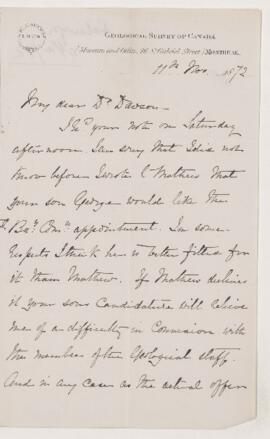 GEOLOGICAL SURVEY OF CANADA
Museum and Office, 76 St Gabriel Street MONTREAL
11th Nov. 1872
My dear Dr Dawson
I recd your note on Saturday
afternoon. I am sorry that I did not
know before I wrote to Mathew that
your son George would like the
Bdy Comn appointment. In some
respects I think he is better fitted for
it than Mathew. If Mathew declines
it your sons Candidature will relieve
me of a difficulty in Connexion with
the members of the Geological staff.
And in any case as the actual offer